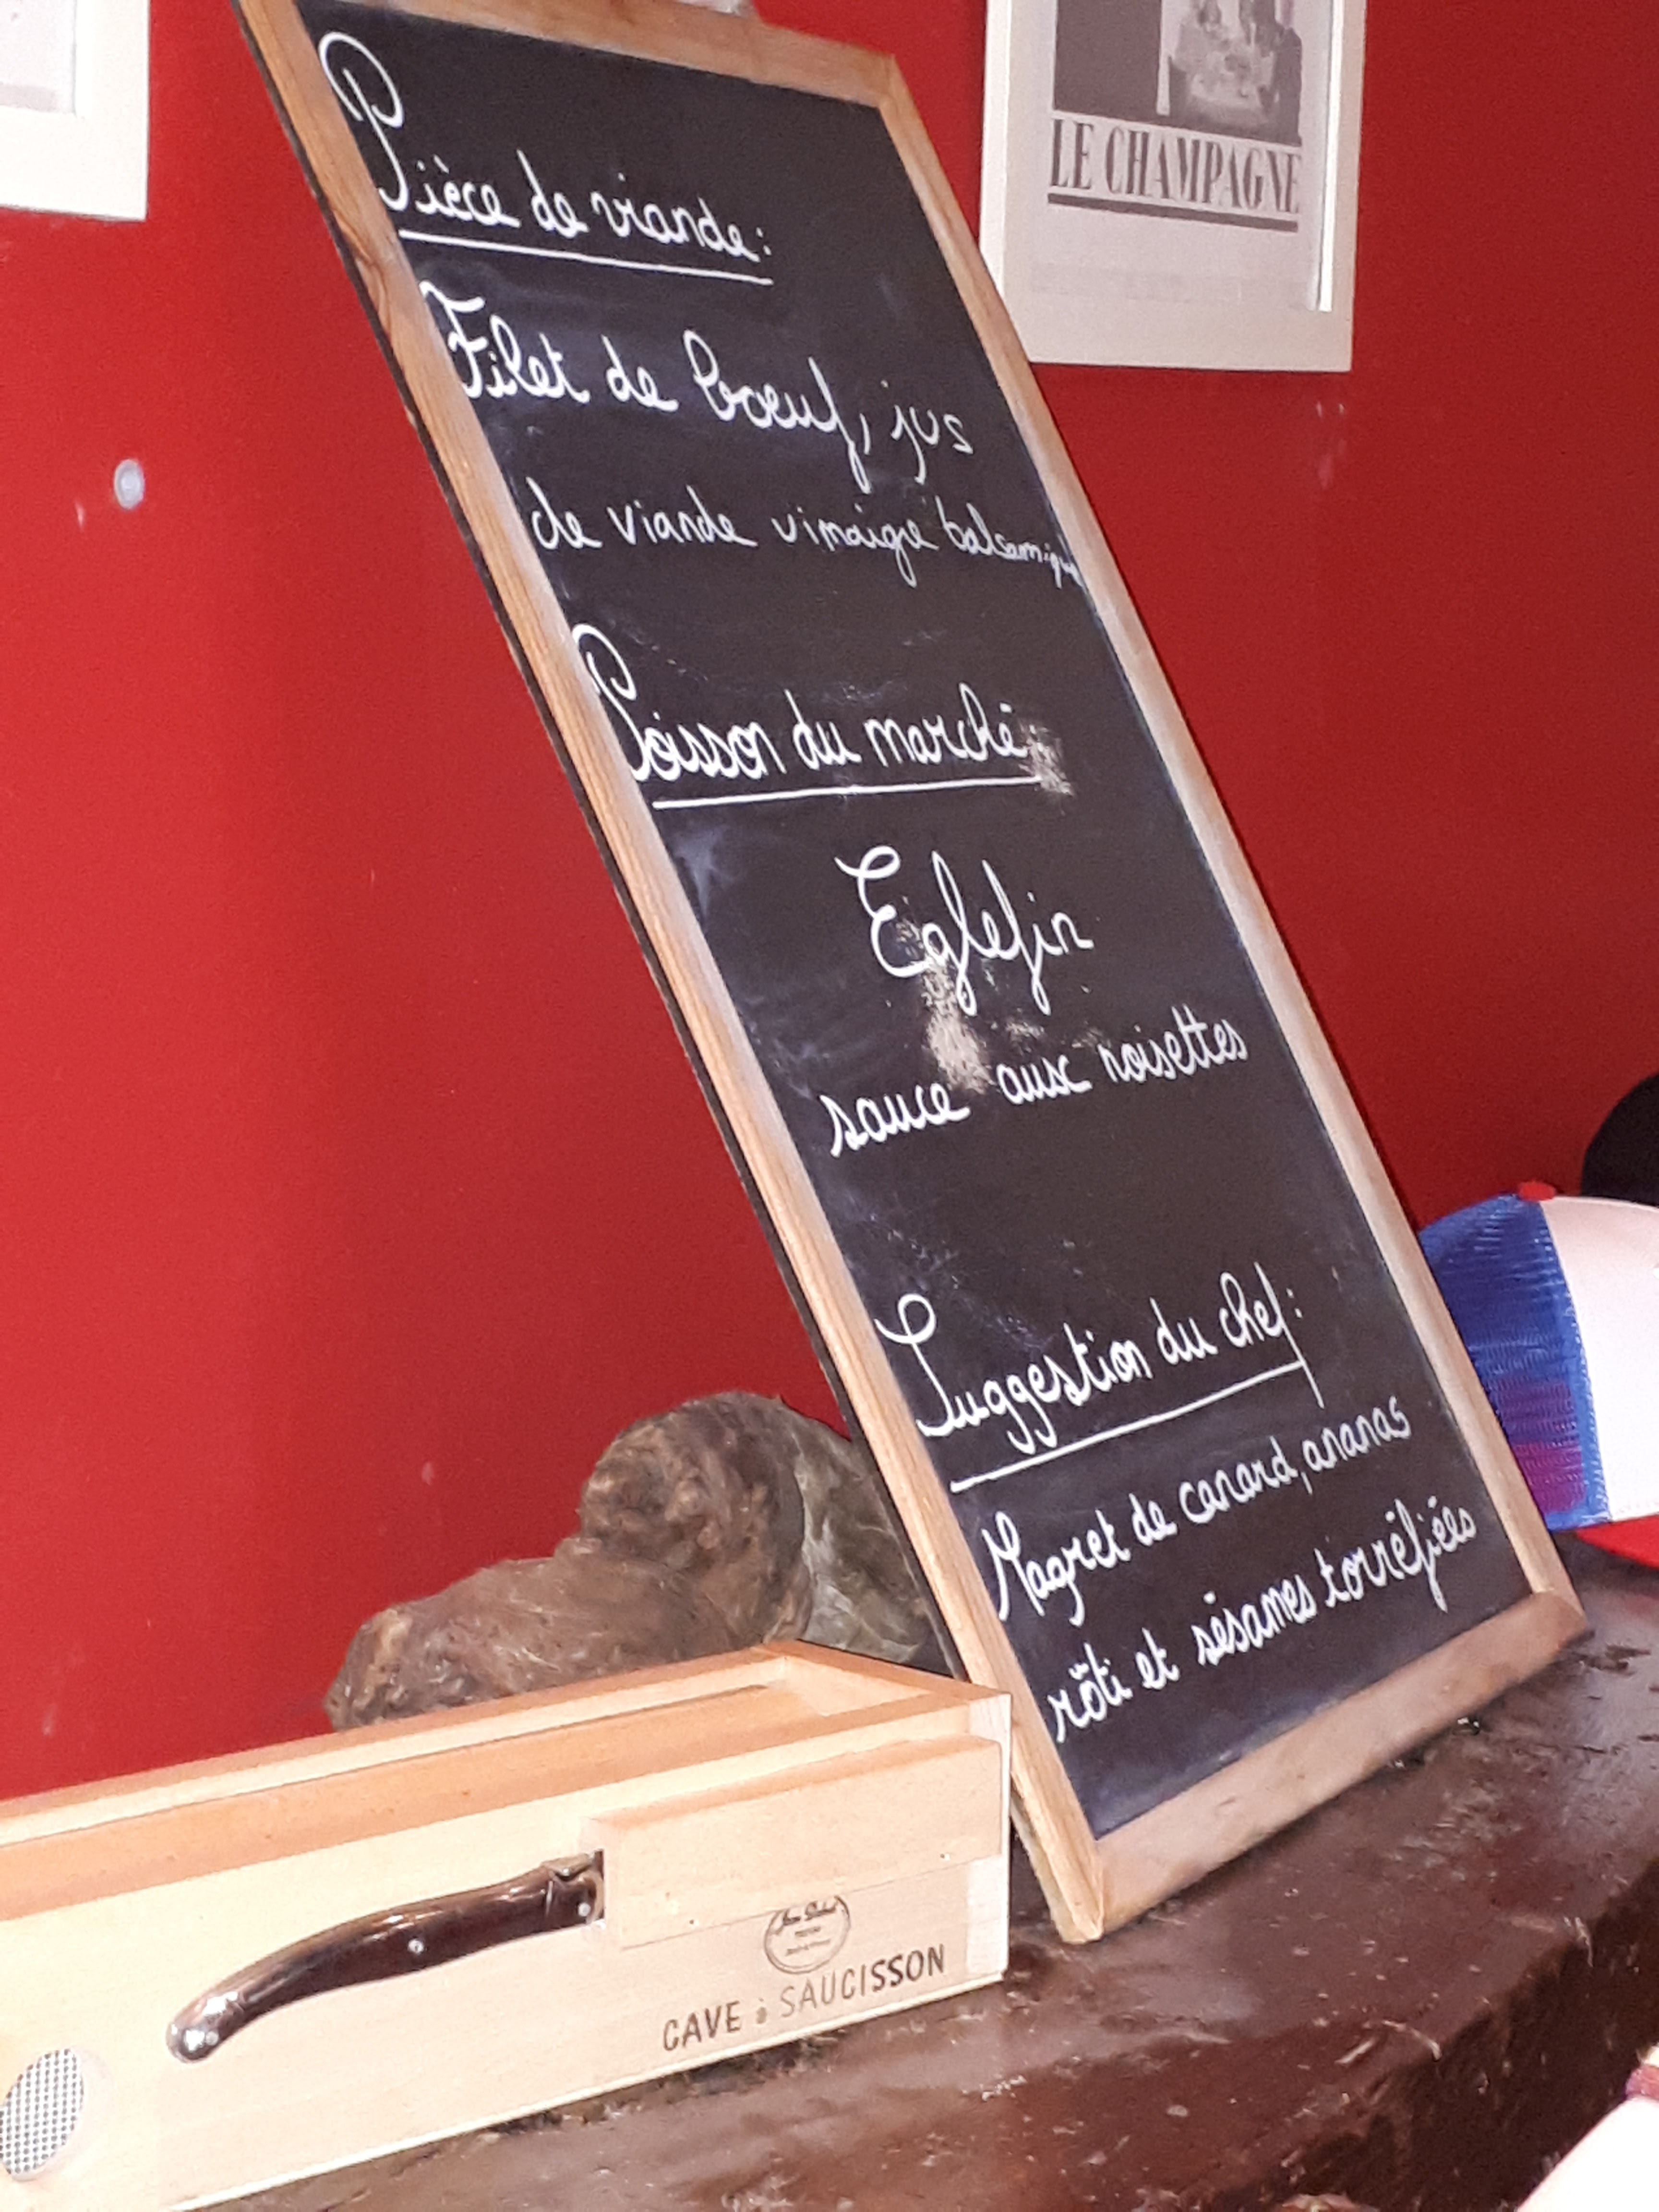 Pièce de viande:
Filet de boeuf, jus
de viande vinaigre balsamique
Poisson du marché
Eglefin
sauce aux noisettes
Suggestion du chef:
Magret de canard, ananas
rôti et sésames torréfiées
LE CHAMPAGNE
CAVE à SAUCISSON